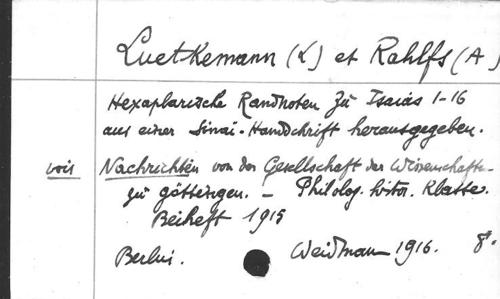 Luetkemann (L) et Rahlfs (A)
Hexaplarische Randnoten zu Isaias 1-16
aus einer Sinai-Handschrift herausgegeben.
voir Nachrichten von der Gesellschaft der Wissenschaften
zu Göttingen. - Philolog. histor. Klasse.
Beiheft 1915
Berlin. Weidmann 1916. 8°.